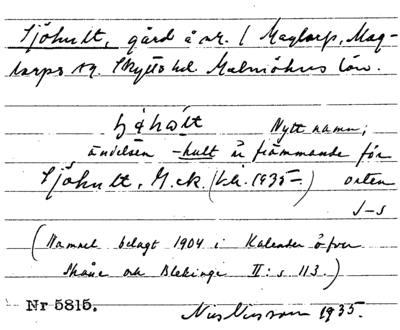 Sjöhult, gård å nr. 1 Maglarp, Mag-
larps sn. Skytts hd. Malmöhus län.
Nytt namn;
ändelsen -hult är främmande för
Sjöhult, M.ck. 1935 orten
J-s
(Namnet belagt 1904 i Kalender öfver
Skåne och Blekinge II: s. 113.)
Nr 5815.
Nils Nilsson 1935.